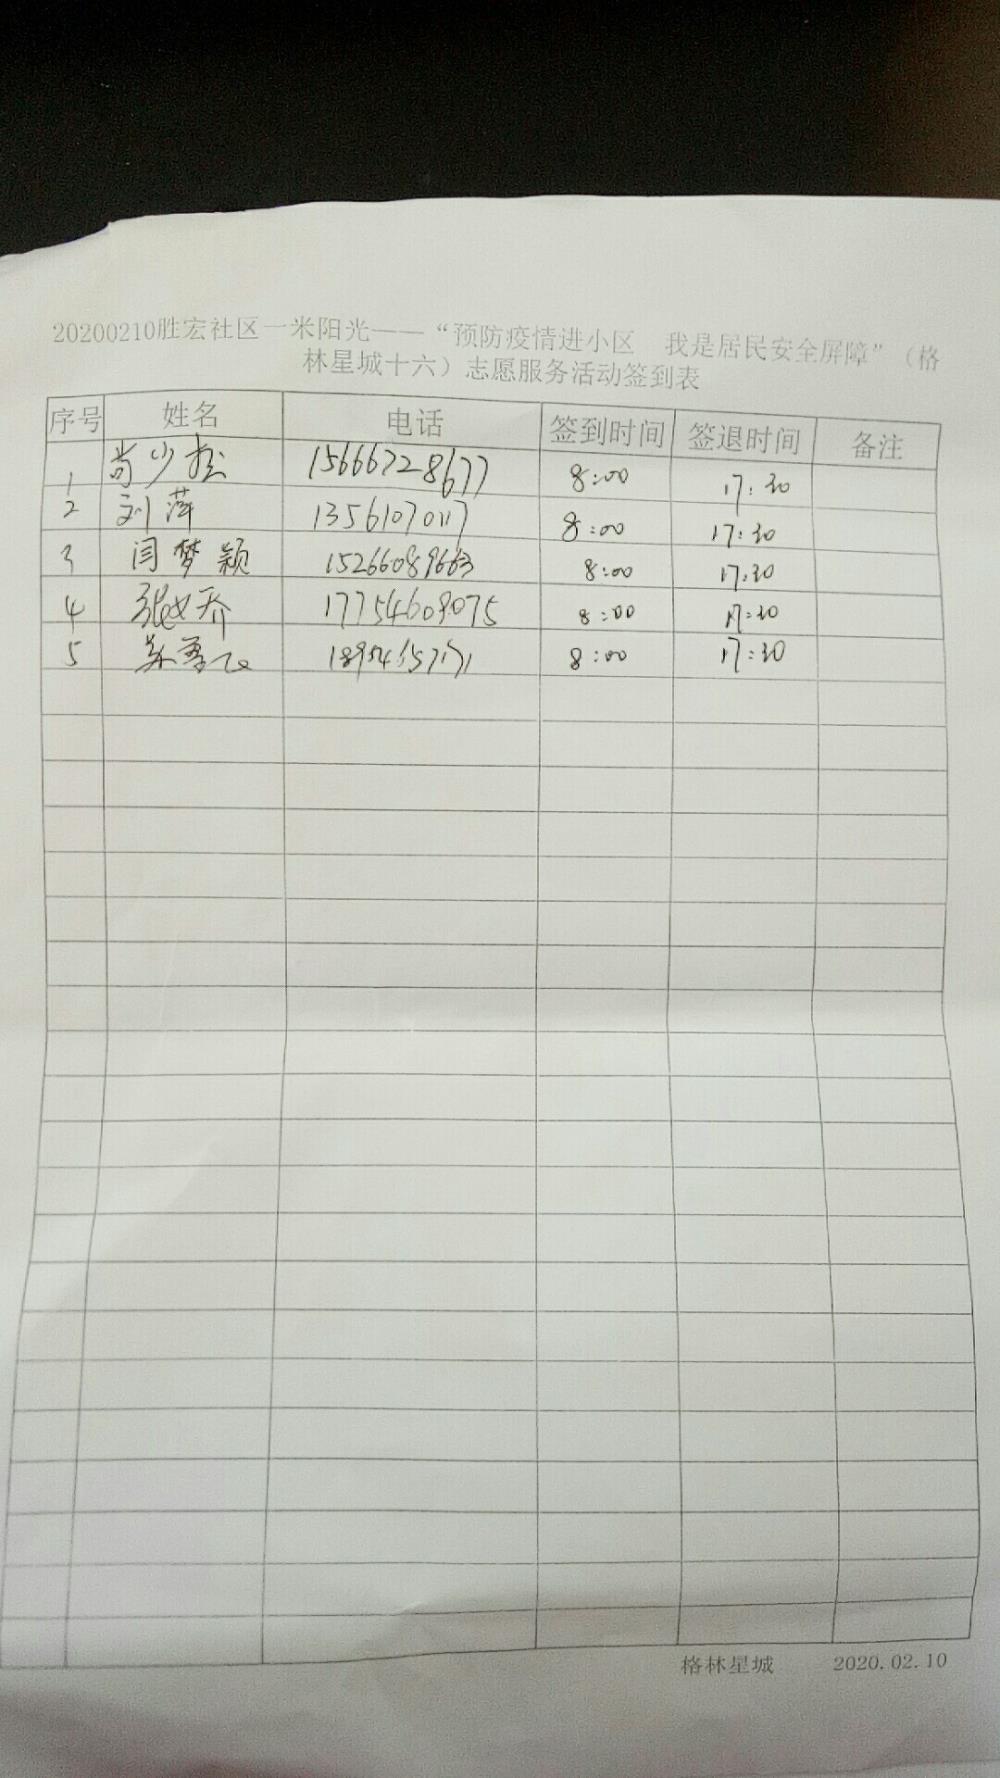 20200210胜宏社区一米阳光——“预防疫情进小区 我是居民安全屏障”（格
林星城十六）志愿服务活动签到表
序号 姓名 电话 签到时间 签退时间 备注
1 15666728677 8:00 17:30
2 刘萍 13561070117 8:00 17:30
3 闫梦颖 15266089663 8:00 17:30
4 17754609075 8:00 17:30
5 8:00 17:30
格林星城 2020.02.10